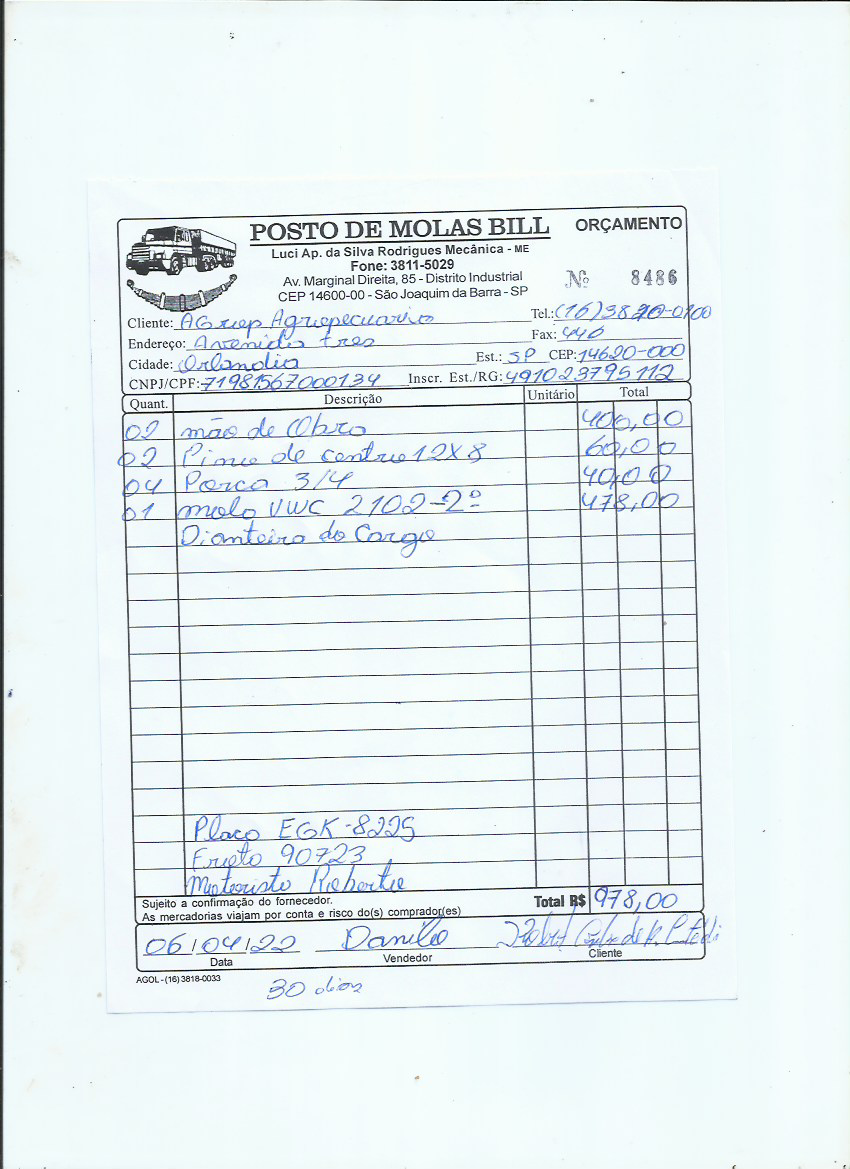 POSTO DE MOLAS BILL ORÇAMENTO
Luci Ap. da Silva Rodrigues Mecânica - ME
Fone: 3811-5029
Av. Marginal Direita, 85 - Distrito Industrial
CEP 14600-00 - São Joaquim da Barra - SP
Nº 8486
Cliente: AGriep Agriepecuario Tel.: (16) 3820-0100
Endereço: Avenida tres Fax: 440
Cidade: Orlandia Est.: SP CEP: 14620-000
CNPJ/CPF: 71981567000134 Inscr. Est./RG: 491023795112
Quant. Descrição Unitário Total
02 mão de Obra 400,00
02 Pino de centro 12X8 60,00
04 Porca 3/4 40,00
01 mola VWC 2102-2º 478,00
Dianteira do Cargo
Placa EGK-8225
Frota 90723
Motorista Roberto
Sujeito a confirmação do fornecedor.
As mercadorias viajam por conta e risco do(s) comprador(es)
Total R$ 978,00
06/04/22 Danilo
Data Vendedor Cliente
AGOL - (16) 3818-0033
30 dias